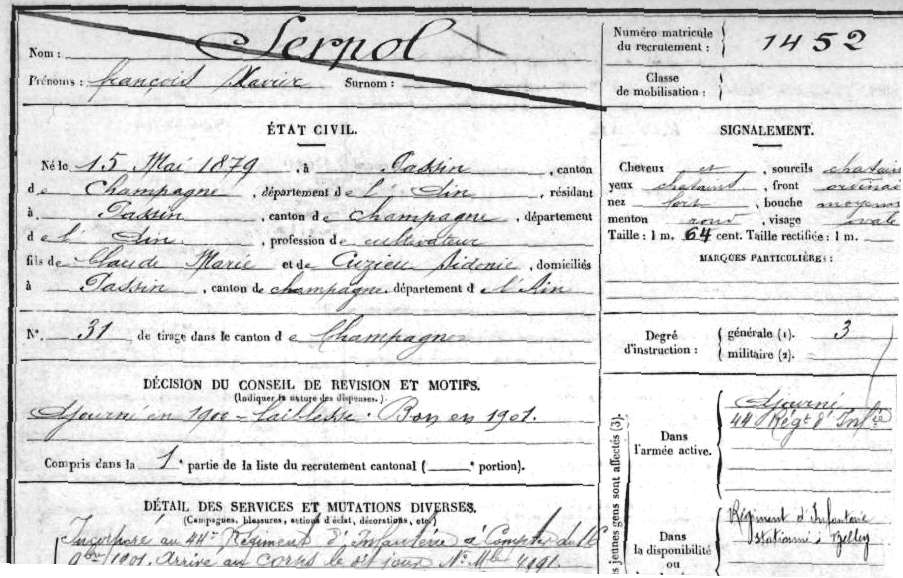 Nom : Serpol
Prénoms : françois Xavier Surnom :
Numéro matricule du recrutement : 1452
Classe de mobilisation :
ÉTAT CIVIL.
Né le 15 Mai 1879, à Passin, canton
de Champagne, département de l'Ain, résidant
à Passin, canton de Champagne, département
de l'Ain, profession de cultivateur
fils de Claude Marie et de Cuzieu Sidonie, domiciliés
à Passin, canton de champagne, département d l'Ain
N°. 31 de tirage dans le canton de Champagne
DÉCISION DU CONSEIL DE REVISION ET MOTIFS.
(Indiquer la nature des dispenses.)
Ajourné en 1900 - faiblesse. Bon en 1901.
Compris dans la 1e partie de la liste du recrutement cantonal ( e portion).
DÉTAIL DES SERVICES ET MUTATIONS DIVERSES.
(Campagnes, blessures, actions d'éclat, décorations, etc.)
Incorporé au 44e Régiment d'Infanterie à Compter du 16
9bre 1901. Arrivé au corps le dit jour N° Mle 4191.
SIGNALEMENT.
Cheveux et, sourcils chatain
yeux chatains, front ordinai
nez fort, bouche moyenne
menton rond, visage ovale
Taille : 1 m. 64 cent. Taille rectifiée : 1 m.
MARQUES PARTICULIÈRES :
Degré d'instruction : générale (1). 3
militaire (2).
es jeunes gens sont affectés (3).
Dans l'armée active.
Ajourné
44 Régt d'Infie
Dans la disponibilité ou
Régiment d'Infanterie
stationné à Belley